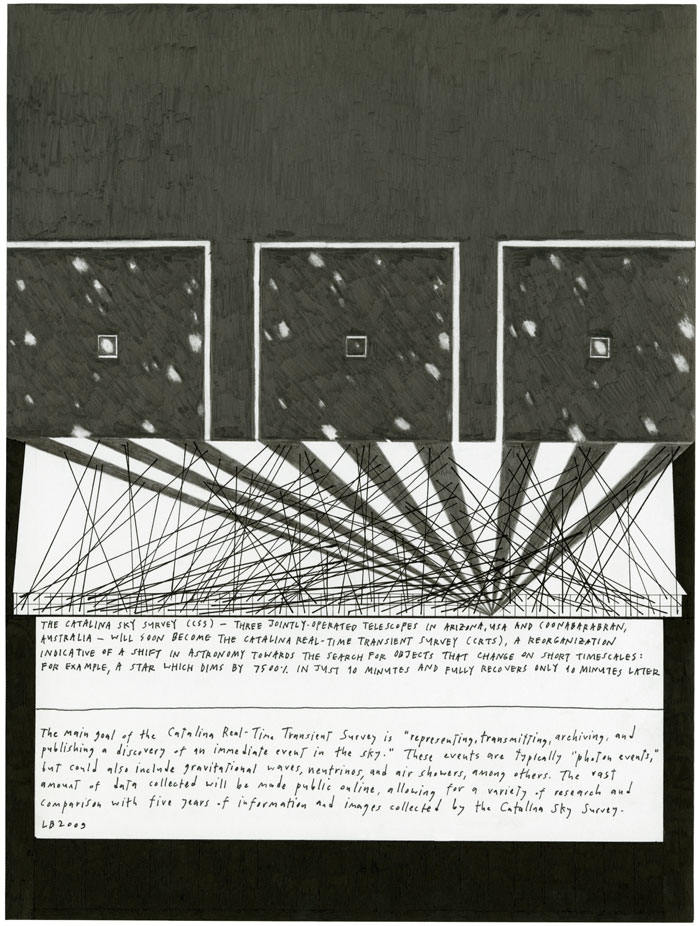 THE CATALINA SKY SURVEY (CSS) — THREE JOINTLY-OPERATED TELESCOPES IN ARIZONA, USA AND COONABARABRAN,
AUSTRALIA — WILL SOON BECOME THE CATALINA REAL-TIME TRANSIENT SURVEY (CRTS), A REORGANIZATION
INDICATIVE OF A SHIFT IN ASTRONOMY TOWARDS THE SEARCH FOR OBJECTS THAT CHANGE ON SHORT TIMESCALES:
FOR EXAMPLE, A STAR WHICH DIMS BY 7500% IN JUST 10 MINUTES AND FULLY RECOVERS ONLY 90 MINUTES LATER
The main goal of the Catalina Real-Time Transient Survey is "representing, transmitting, archiving, and
publishing a discovery of an immediate event in the sky." These events are typically "photon events,"
but could also include gravitational waves, neutrinos, and air showers, among others. The vast
amount of data collected will be made public online, allowing for a variety of research and
comparison with five years of information and images collected by the Catalina Sky Survey.
LB2009